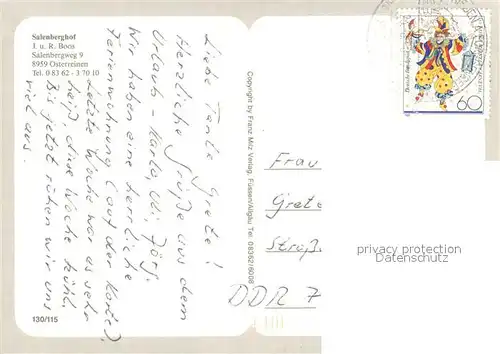 Salenberghof
J. u. R. Boos
Salenbergweg 9
8959 Österreinen
Tel. 0 83 62 - 3 70 10
Liebe Tante Grete!
Herzliche Grüße aus dem
Urlaub - Karla, Uli, Jörg.
Wir haben eine herrliche
Ferienwohnung (auf der Karte).
Letzte Woche war es sehr
heiß, diese Woche kühl.
Bis jetzt ruhen wir uns
viel aus.
130/115
Copyright by Franz Milz Verlag, Füssen/Allgäu Tel. 08362/6008
60
Frau
Grete
Straß
DDR 7
privacy protection
Datenschutz